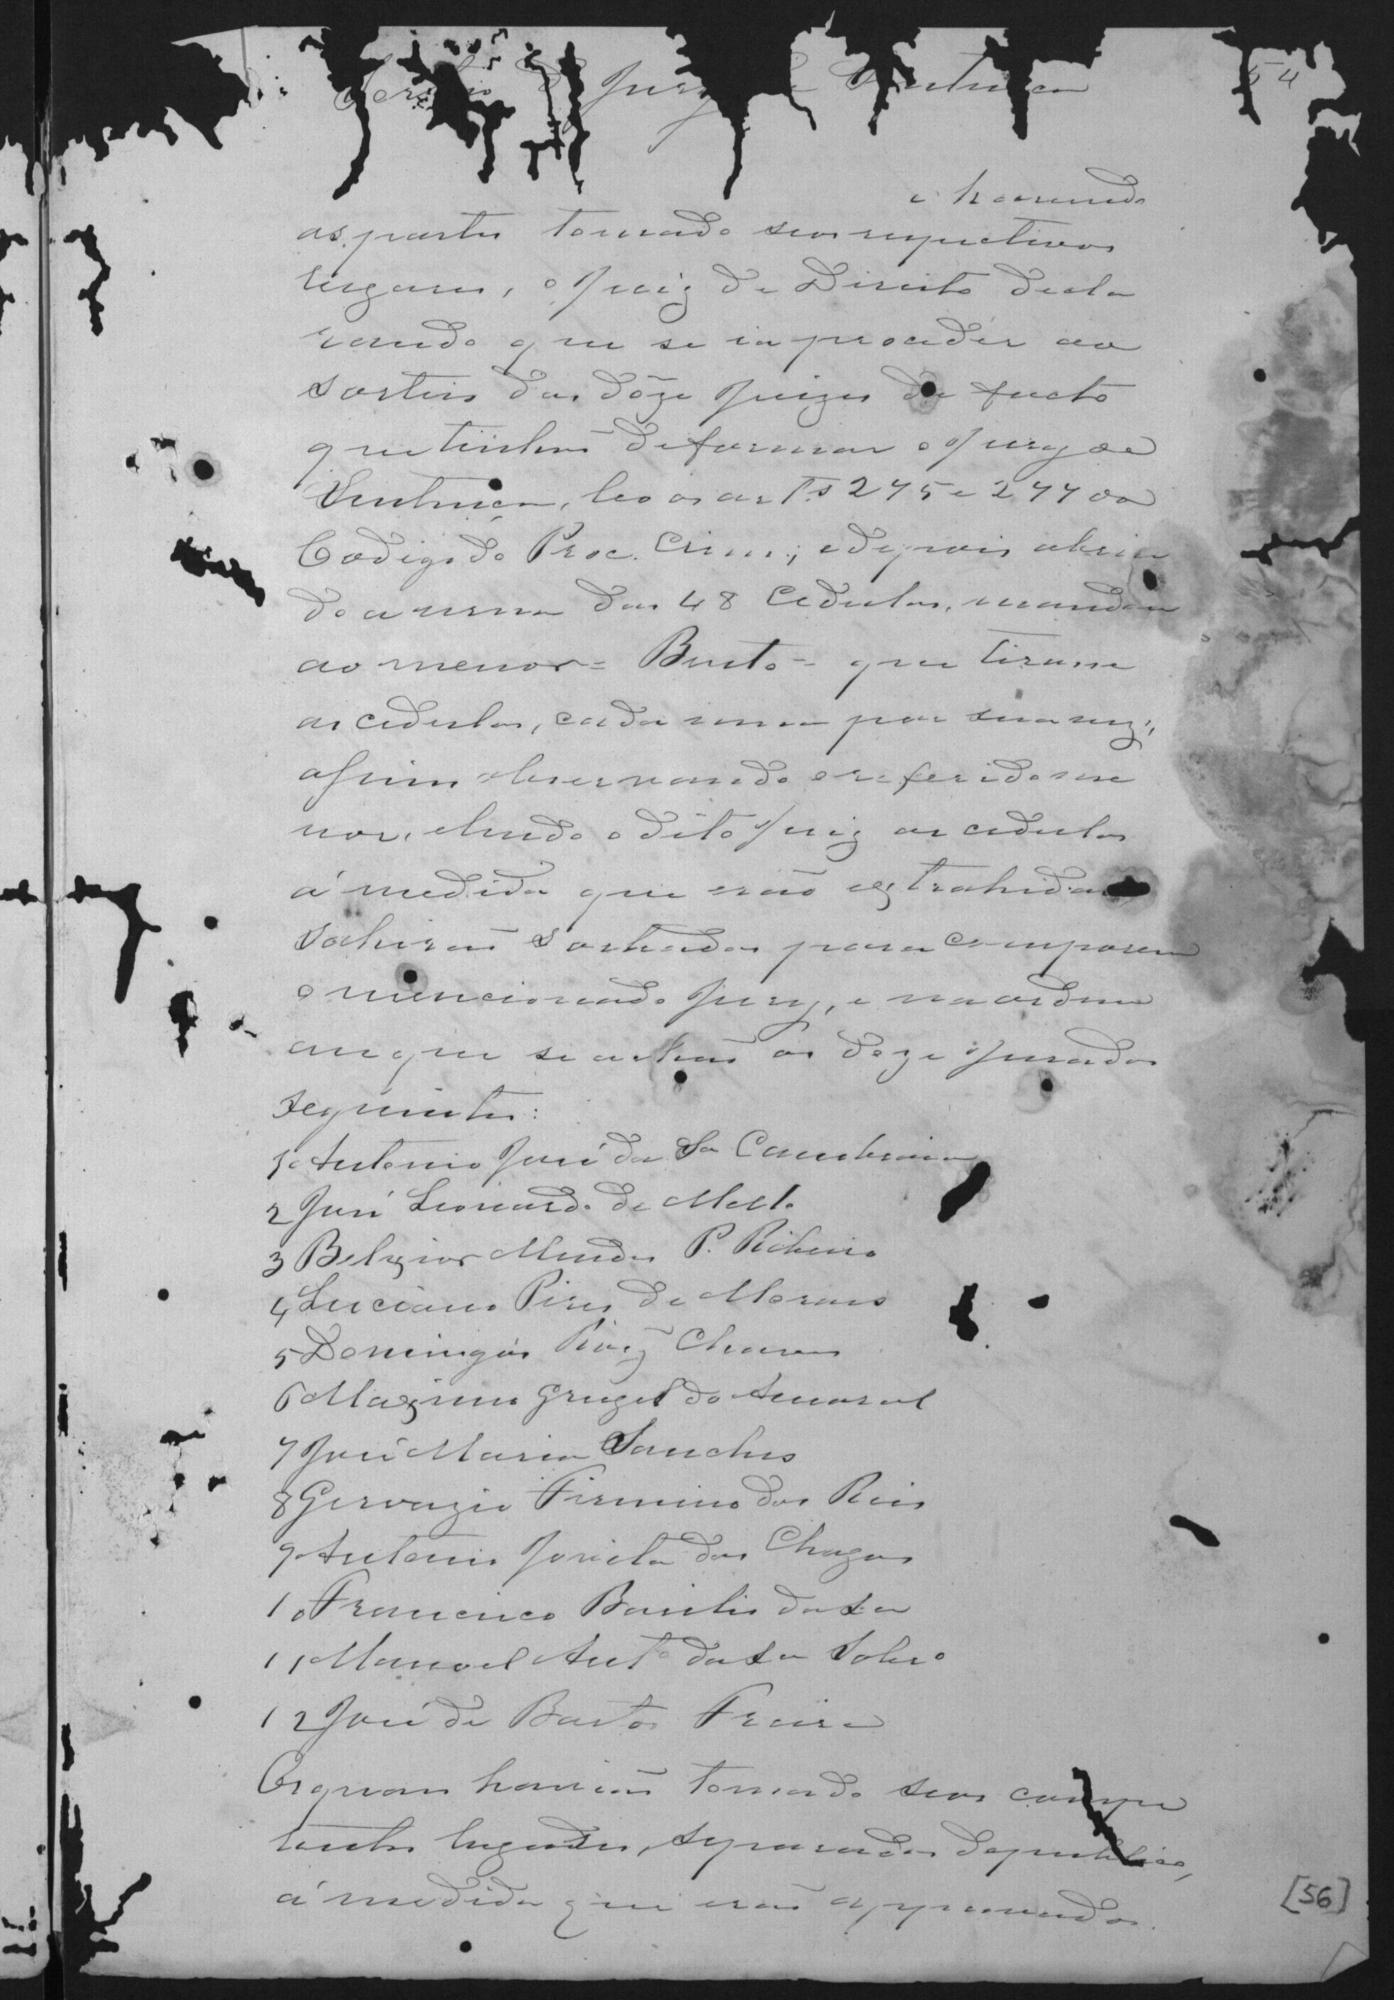 Sorteio do Jury de Sentença
54
e havendo
as partes tomado seus respectivos
lugares, o Juiz de Direito decla
rando que se ia proceder ao
sorteio dos dôze Juizes de facto
que tinhão de formar o Jury de
Sentença, leo os art.s 275 e 277 do
Codigo do Proc. Crim.; e depois abrin
do a urna das 48 cedulas, mandou
ao menor = Bento = que tirasse
as cedulas, cada uma por sua vez;
assim observando o referido me
nor, e lendo o dito Juiz as cedulas
á medida que erão extrahidas
sahirão sorteados para comporem
o mencionado Jury, e na ordem
em que se achão os doze jurados
seguintes:
1º Antonio José da Sa Cambraia
2 José Leonardo de Mello
3 Belxior Mendes P. Ribeiro
4 Luciano Pires de Moraes
5 Domingos Roiz Chaves
6 Maximo Grugel do Amaral
7 José Maria Sanches
8 Gervazio Firmino dos Reis
9 Antonio das Chagas
10 Francisco Basilio da Sa
11 Manoel Anto da Sa Sobro
12 José de Bastos Freire
Os quaes havião tomado seos compe
tentes lugares, separados do publico,
á medida que erão approvados.
[56]